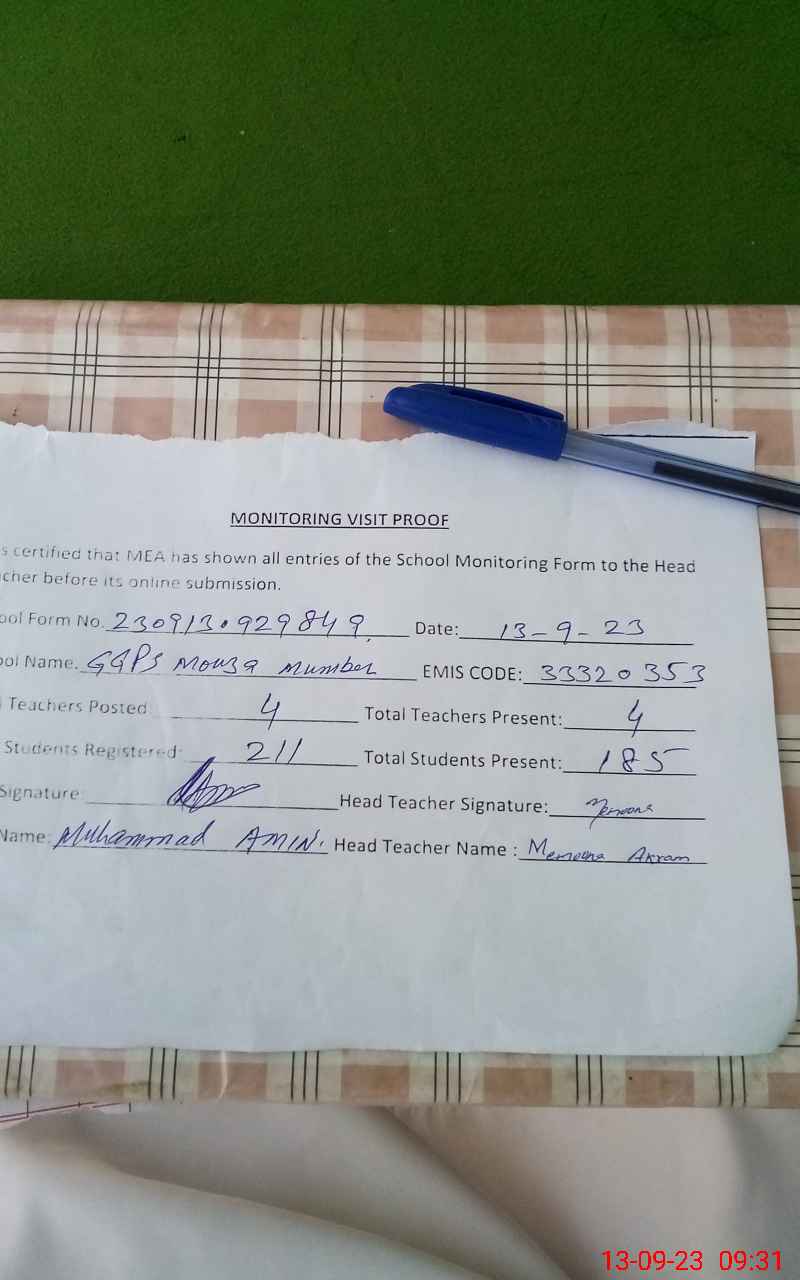 MONITORING VISIT PROOF
s certified that MEA has shown all entries of the School Monitoring Form to the Head
cher before its online submission.
ool Form No. 2309130929849 Date: 13-9-23
ool Name. GGPS Mouza Mumber EMIS CODE: 33320353
Teachers Posted 4 Total Teachers Present: 4
Students Registered: 211 Total Students Present: 185
Signature: Head Teacher Signature:
Name: Muhammad AMIN. Head Teacher Name : Memoona Akram
13-09-23 09:31